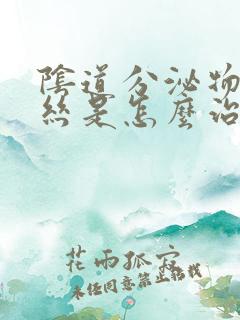 陰道分泌物
絲是怎麼治
花雨孤寂
未经同意禁止转载